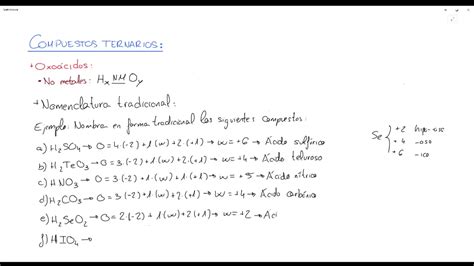 COMPUESTOS TERNARIOS:
+ Oxoácidos:
• No metales: HxNMOy
+ Nomenclatura tradicional:
Ejemplo: Nombra en forma tradicional los siguientes compuestos:
a) H2SO4 → 0=4·(-2)+1(w)+2·(+1) → w=+6 → Ácido sulfúrico
b) H2TeO3 → 0=3·(-2)+1(w)+2·(+1) → w=+4 → Ácido teluroso
c) HNO3 → 0=3·(-2)+1(w)+1(+1) → w=+5 → Ácido nítrico
d) H2CO3 → 0=3·(-2)+1(w)+2(+1) → w=+4 → Ácido carbónico
e) H2SeO2 → 0=2·(-2)+1(w)+2(+1) → w=+2 → Aci
f) HIO4 →
Se { +2 hipo-oso
+4 -oso
+6 -ico